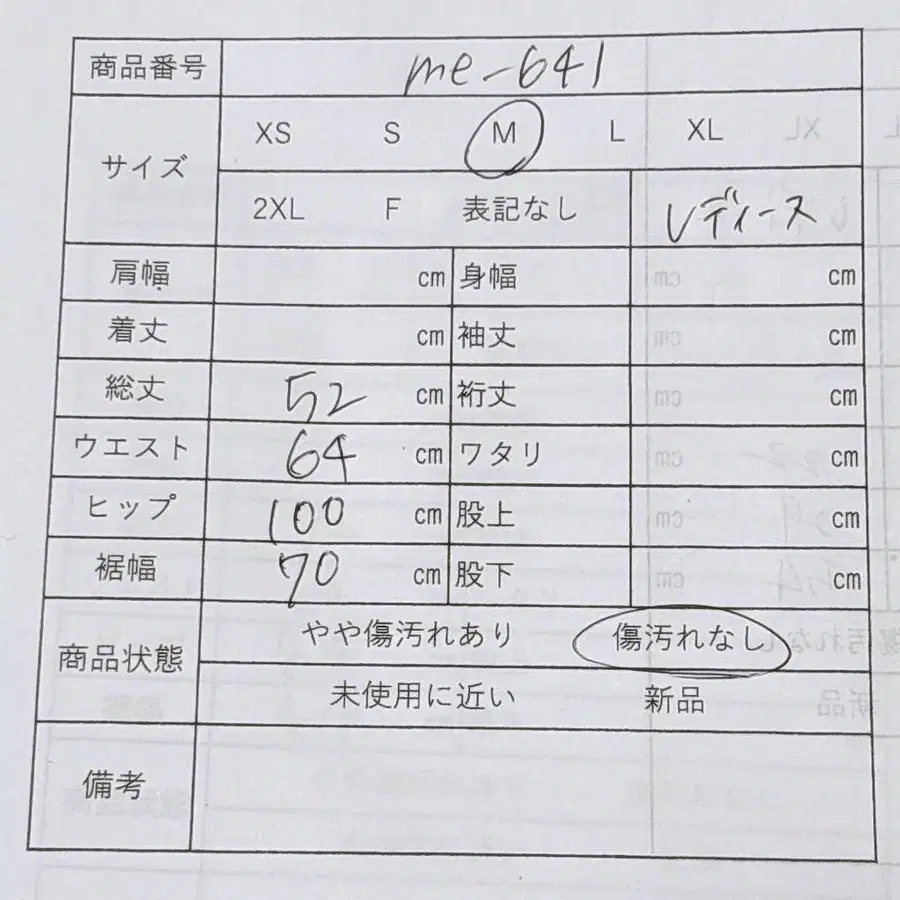 商品番号 me-641
サイズ XS S M L XL
2XL F 表記なし レディース
肩幅 cm 身幅 cm
着丈 cm 袖丈 cm
総丈 52 cm 裄丈 cm
ウエスト 64 cm ワタリ cm
ヒップ 100 cm 股上 cm
裾幅 70 cm 股下 cm
商品状態 やや傷汚れあり 傷汚れなし
未使用に近い 新品
備考